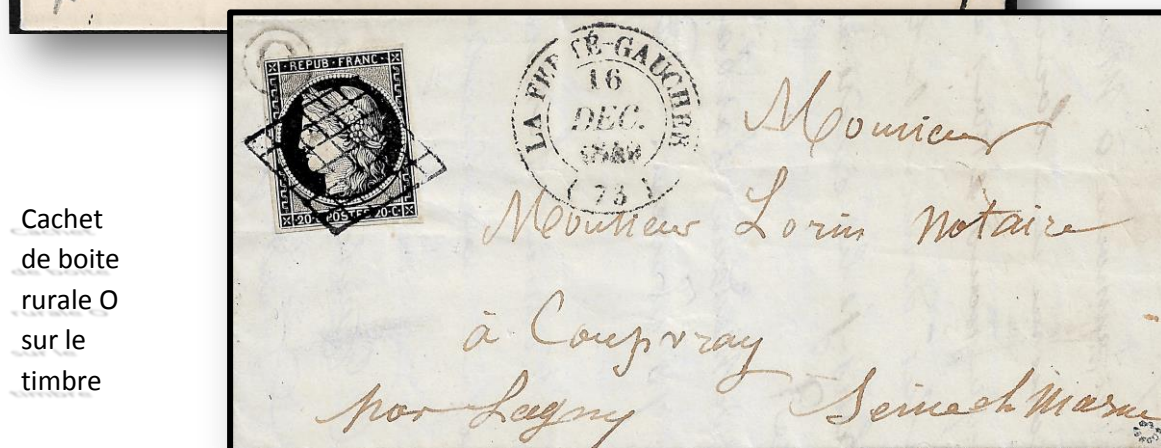 Cachet
de boite
rurale O
sur le
timbre
O
REPUB·FRANC·
20·C POSTES 20·C
LA FERTÉ-GAUCHER
16
DEC.
1849
(73)
Monsieur
Monsieur Lorin Notaire
à Coupvray
par Lagny Seine et Marne